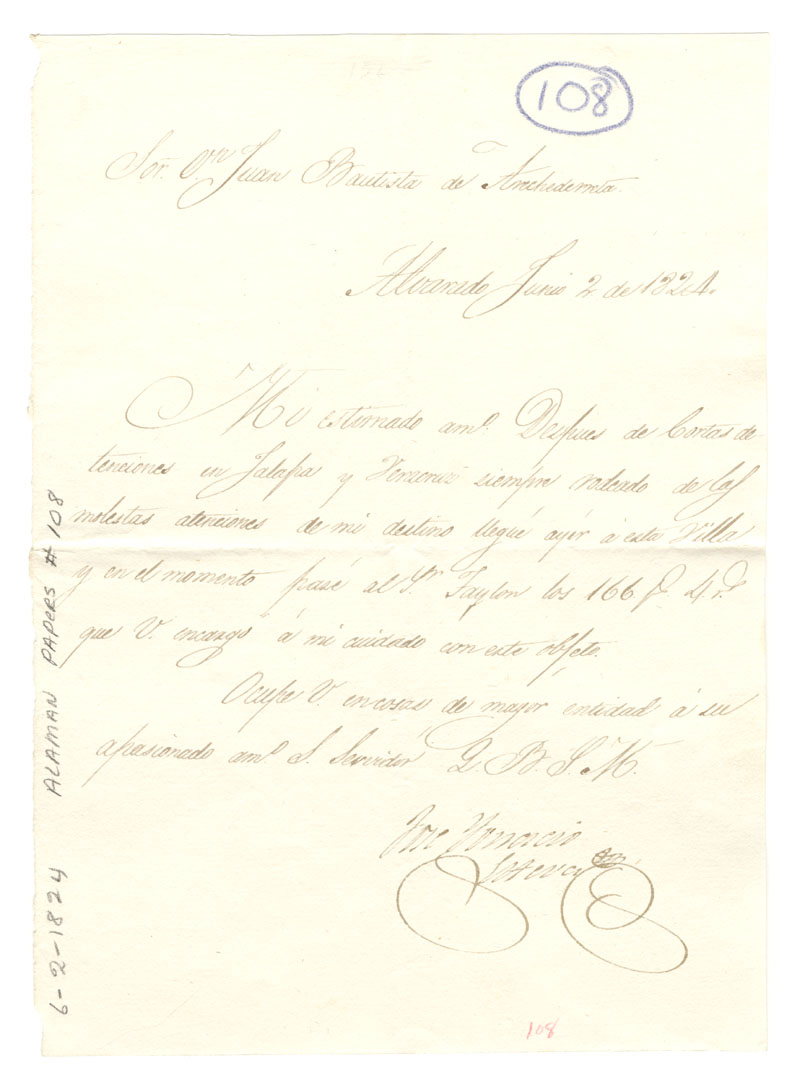 108
Sor. Dn. Juan Bautista de Arechederreta.
Alvarado Junio 2 de 1824.
Mi estimado amo. Despues de Cortas de
tenciones en Jalapa y Veracruz siempre rodeado de las
molestas atenciones de mi destino llegué ayer á esta Villa
y en el momento pasé al Sr. Taylor los 166 p 4 rs
que V. encargó á mi cuidado con este objeto.
Ocupe V. en cosas de mayor entidad á su
apasionado amo. S. Servidor Q. B. S. M.
Jose Ygnacio
Esteva
108
6-2-1824 ALAMAN PAPERS # 108